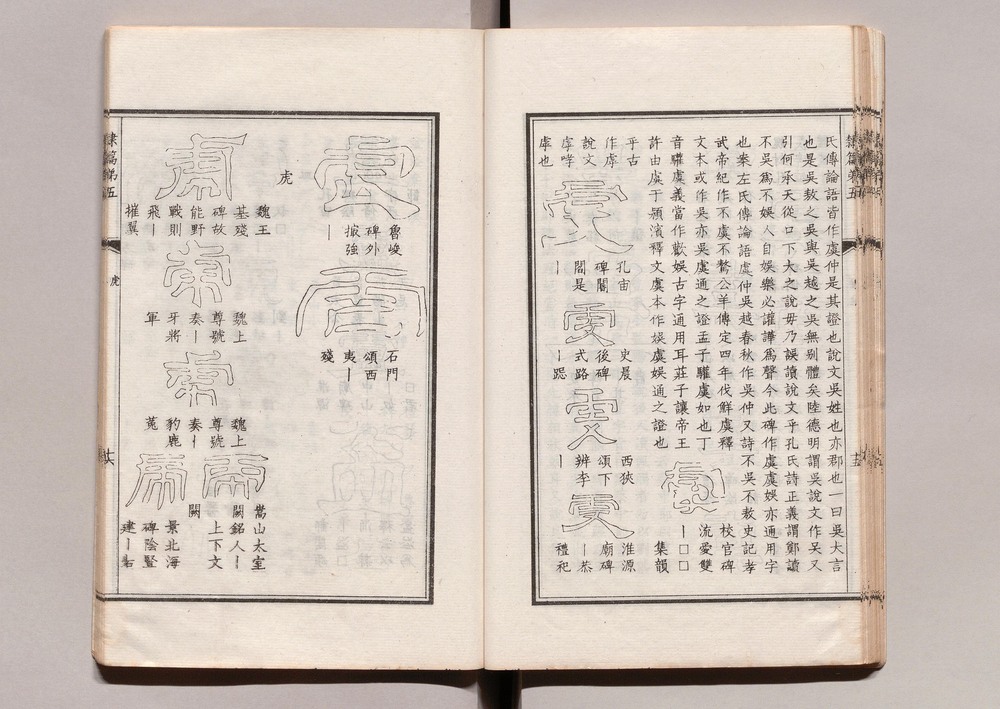 氏傳論語皆作虞仲是其證也說文吳姓也亦郡也一曰吳大言
也是吳敖之吳與吳越之吳無别體矣陸德明謂吳說文作吴又
引何承天從口下大之說毋乃誤讀說文乎孔氏詩正義謂鄭讀
不吳爲不娛人自娛樂必讙譁爲聲今此碑作虞虞娛亦通用字
也案左氏傳論語虞仲吳越春秋作吳仲又詩不吳不敖史記孝
武帝紀作不虞不驁公羊傳定四年伐鮮虞釋
文本或作吳亦吳虞通之證孟子驩虞如也丁
音驩虞義當作歡娛古字通用耳莊子讓帝王
許由虞于潁濱釋文虞本作娛虞娛通之證也
校官碑
流愛雙
丨□□
集韻
乎古
作虖
說文
虖哮
虖也
孔宙
碑閣
閻是
丨
史晨
後碑
式路
丨跽
西狹
頌下
辨李
丨
淮源
廟碑
丨恭
禮祀
隸篇弟五
十五
魯峻
碑外
掫強
丨
石門
頌西
夷丨
殘
虎
魏王
基殘
碑故
能野
戰則
飛丨
摧翼
魏上
尊號
奏丨
牙將
軍
魏上
尊號
奏丨
豹鹿
菟
嵩山太室
闕銘人丨
上下文
闕
景北海
碑陰豎
建丨右
隸篇弟五
虎
十六